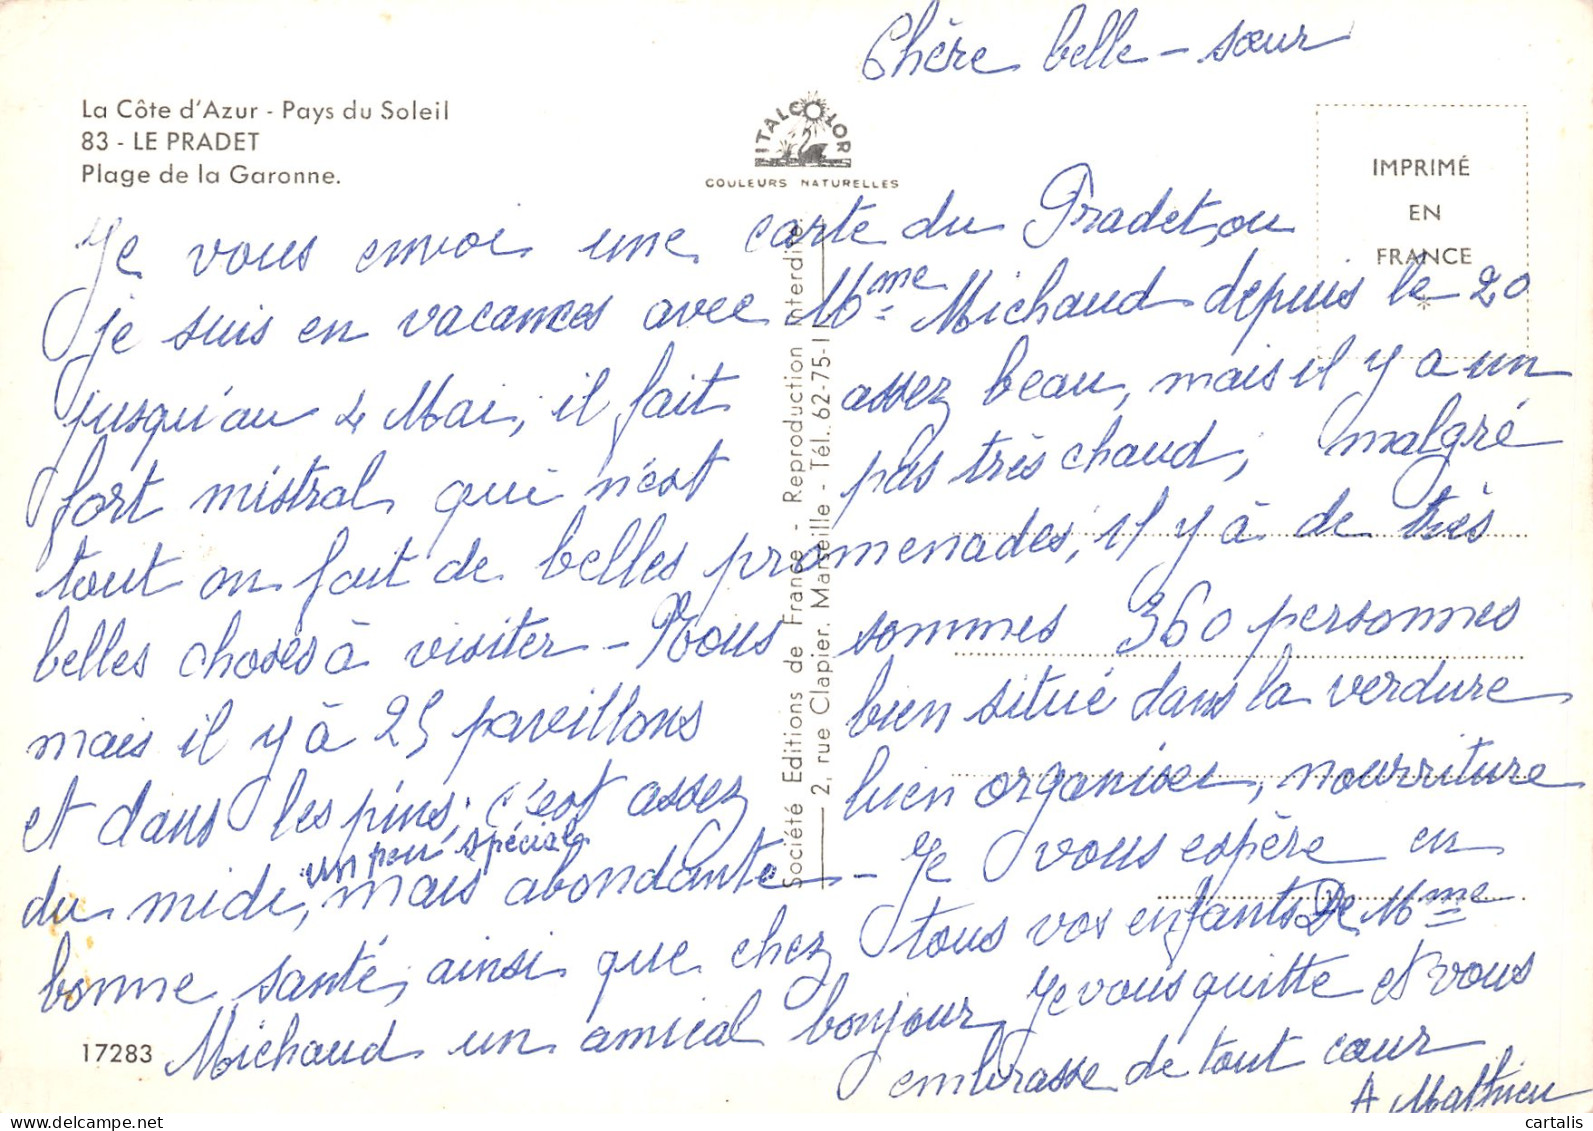 Chère belle-sœur
La Côte d'Azur - Pays du Soleil
83 - LE PRADET
Plage de la Garonne.
ITALCOLOR
COULEURS NATURELLES
IMPRIMÉ
EN
FRANCE
Je vous envoi une carte du Pradet, ou
je suis en vacances avec Mme Michaud depuis le 20
jusqu'au 4 Mai, il fait assez beau, mais il y a un
fort mistral qui n'est pas très chaud, malgré
tout on fait de belles promenades, il y à de très
belles choses à visiter - Nous sommes 360 personnes
mais il y à 25 pavillons bien situé dans la verdure
et dans les pins, c'est assez bien organiser, nourriture
du midi, un peu spéciale mais abondante - Je vous espère en
bonne santé, ainsi que chez tous vos enfants De Mme
Michaud un amical bonjour, Je vous quitte et vous
embrasse de tout cœur
A Mathieu
17283
Société Editions de France - Reproduction Interdite
2, rue Clapier. Marseille - Tél. 62-75-11
cartalis
delcampe.net